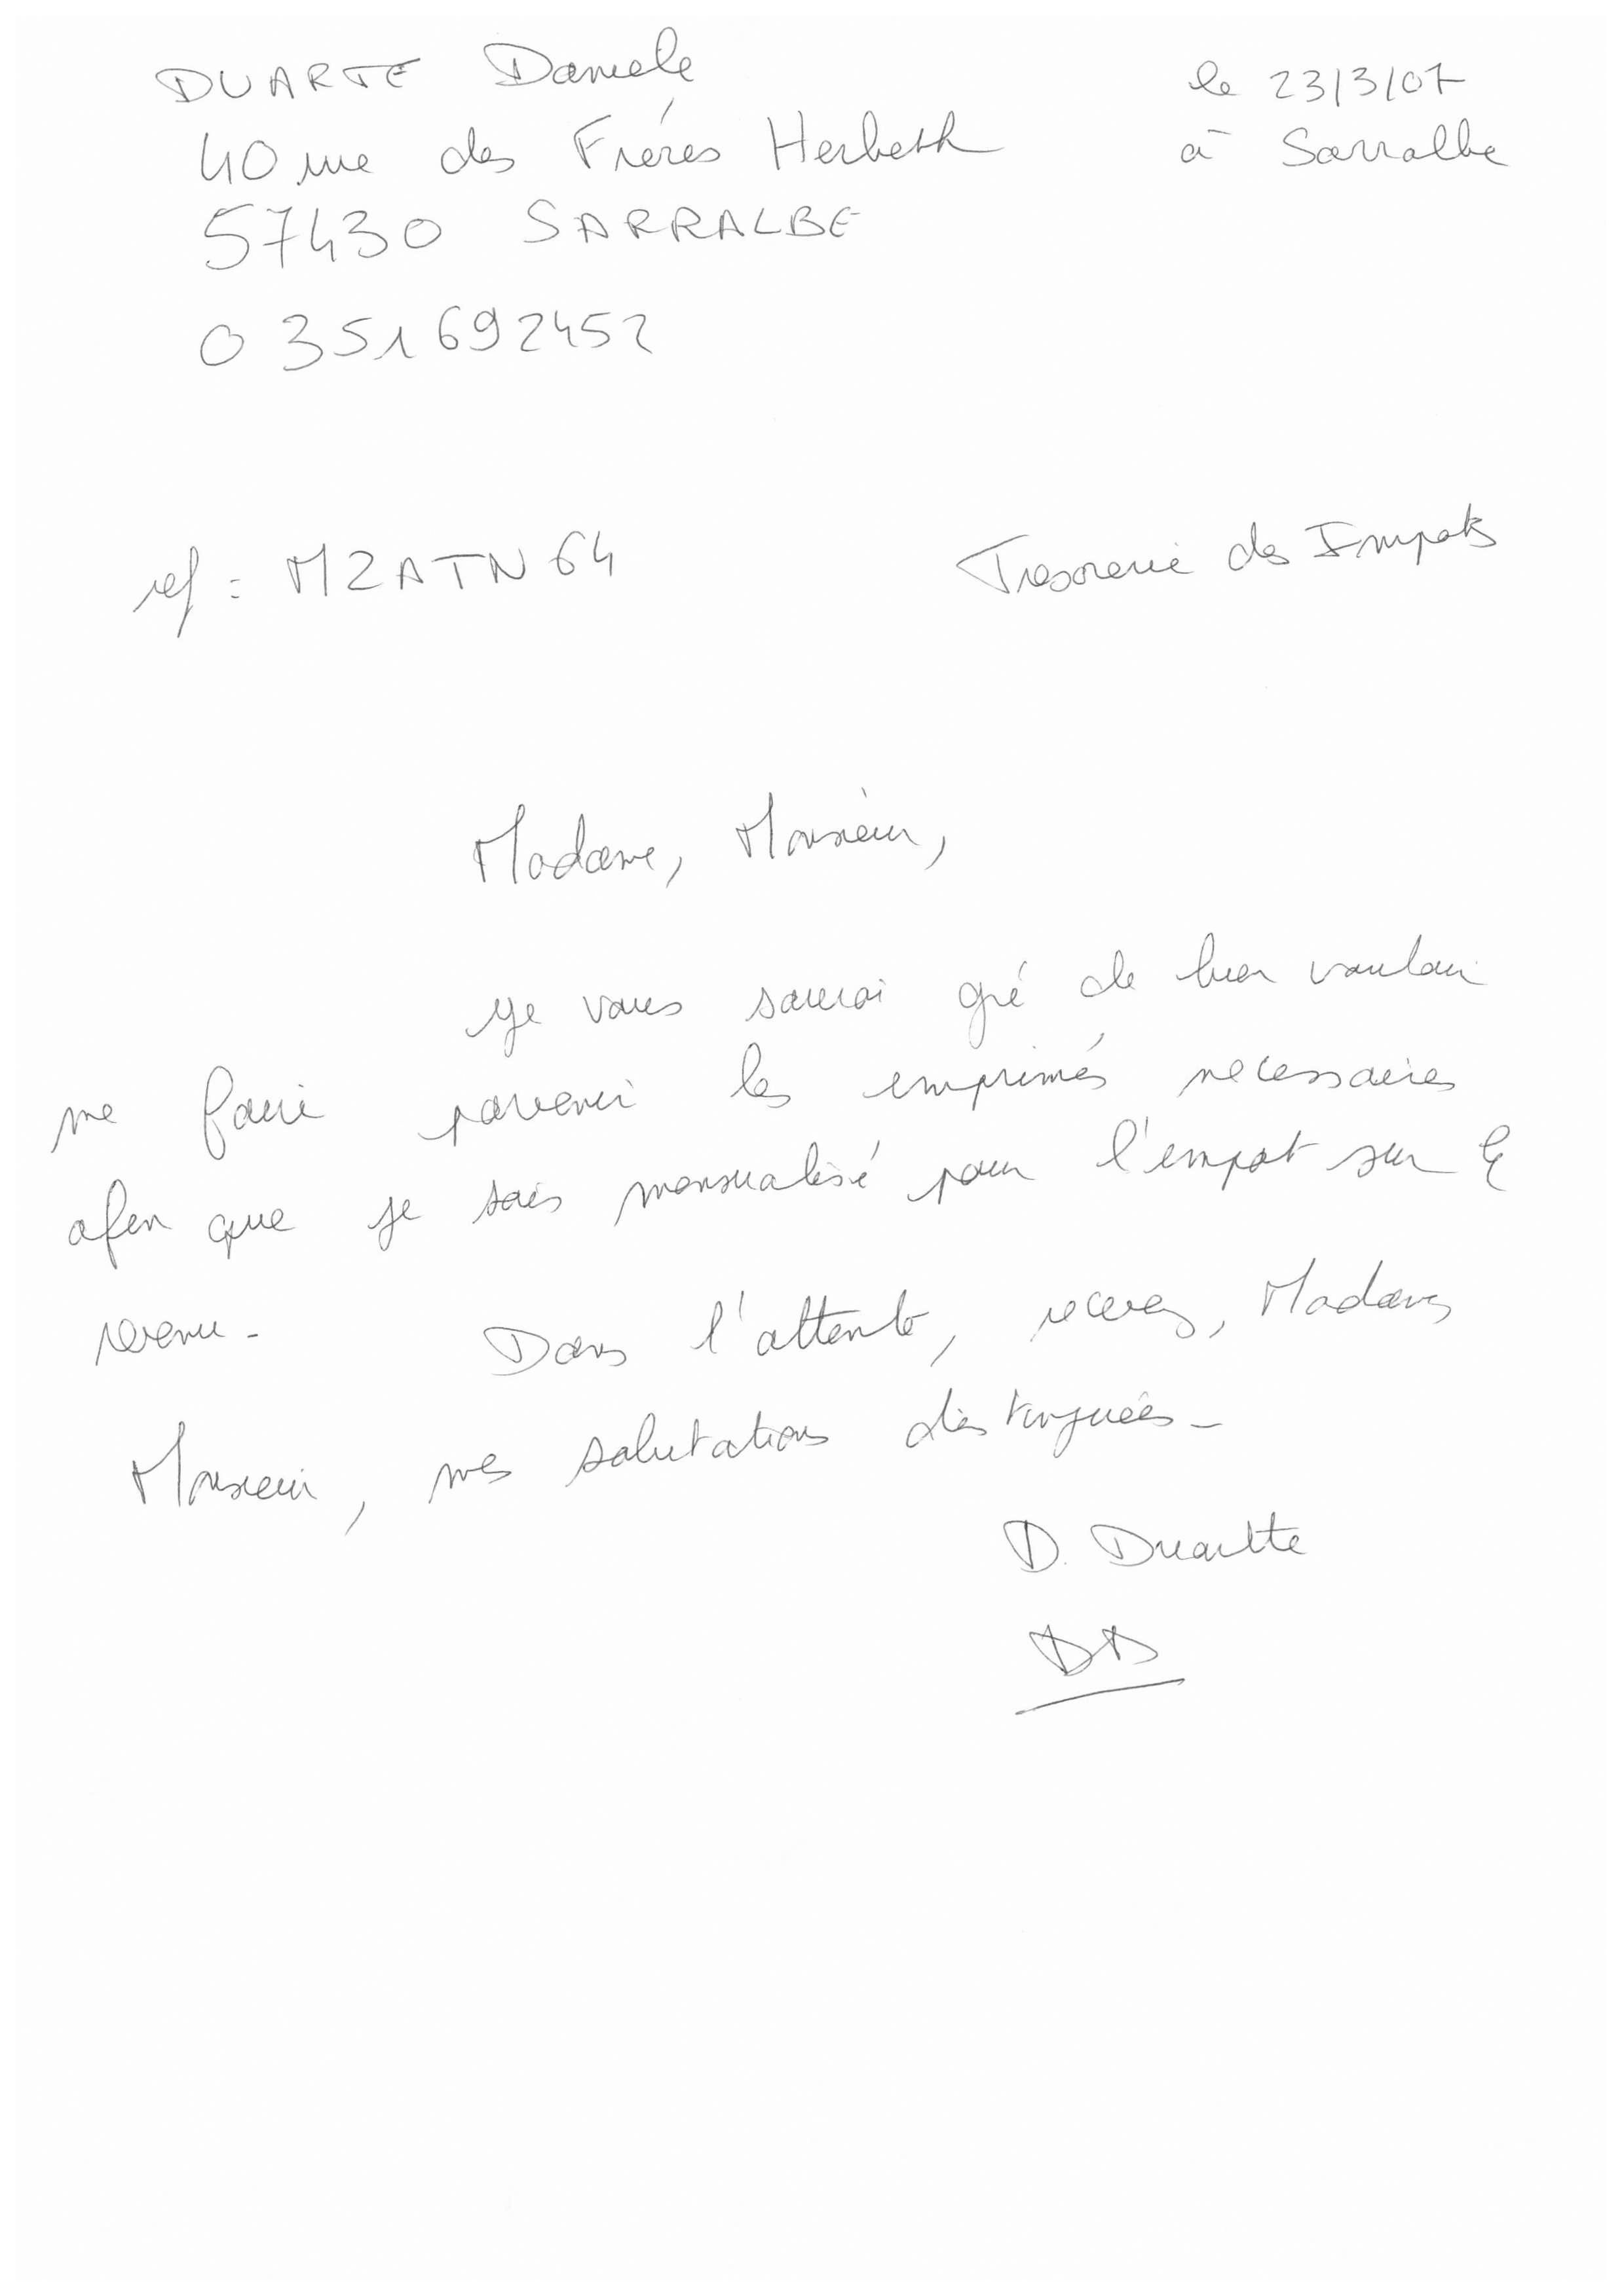 DUARTE Daniele
le 23/3/07
40 rue des Fréres Herbeth
à Sarralbe
57430 SARRALBE
0351692452
ref : M2ATN64
Tresorerie des Impots
Madame, Monsieur,
Je vous saurai gré de bien vouloir
me faire parvenir les imprimés necessaires
afin que je sois mensualisé pour l'impot sur le
revenu. Dans l'attente, recevez, Madame,
Monsieur, mes salutations distinguées.
D. Duarte
DD